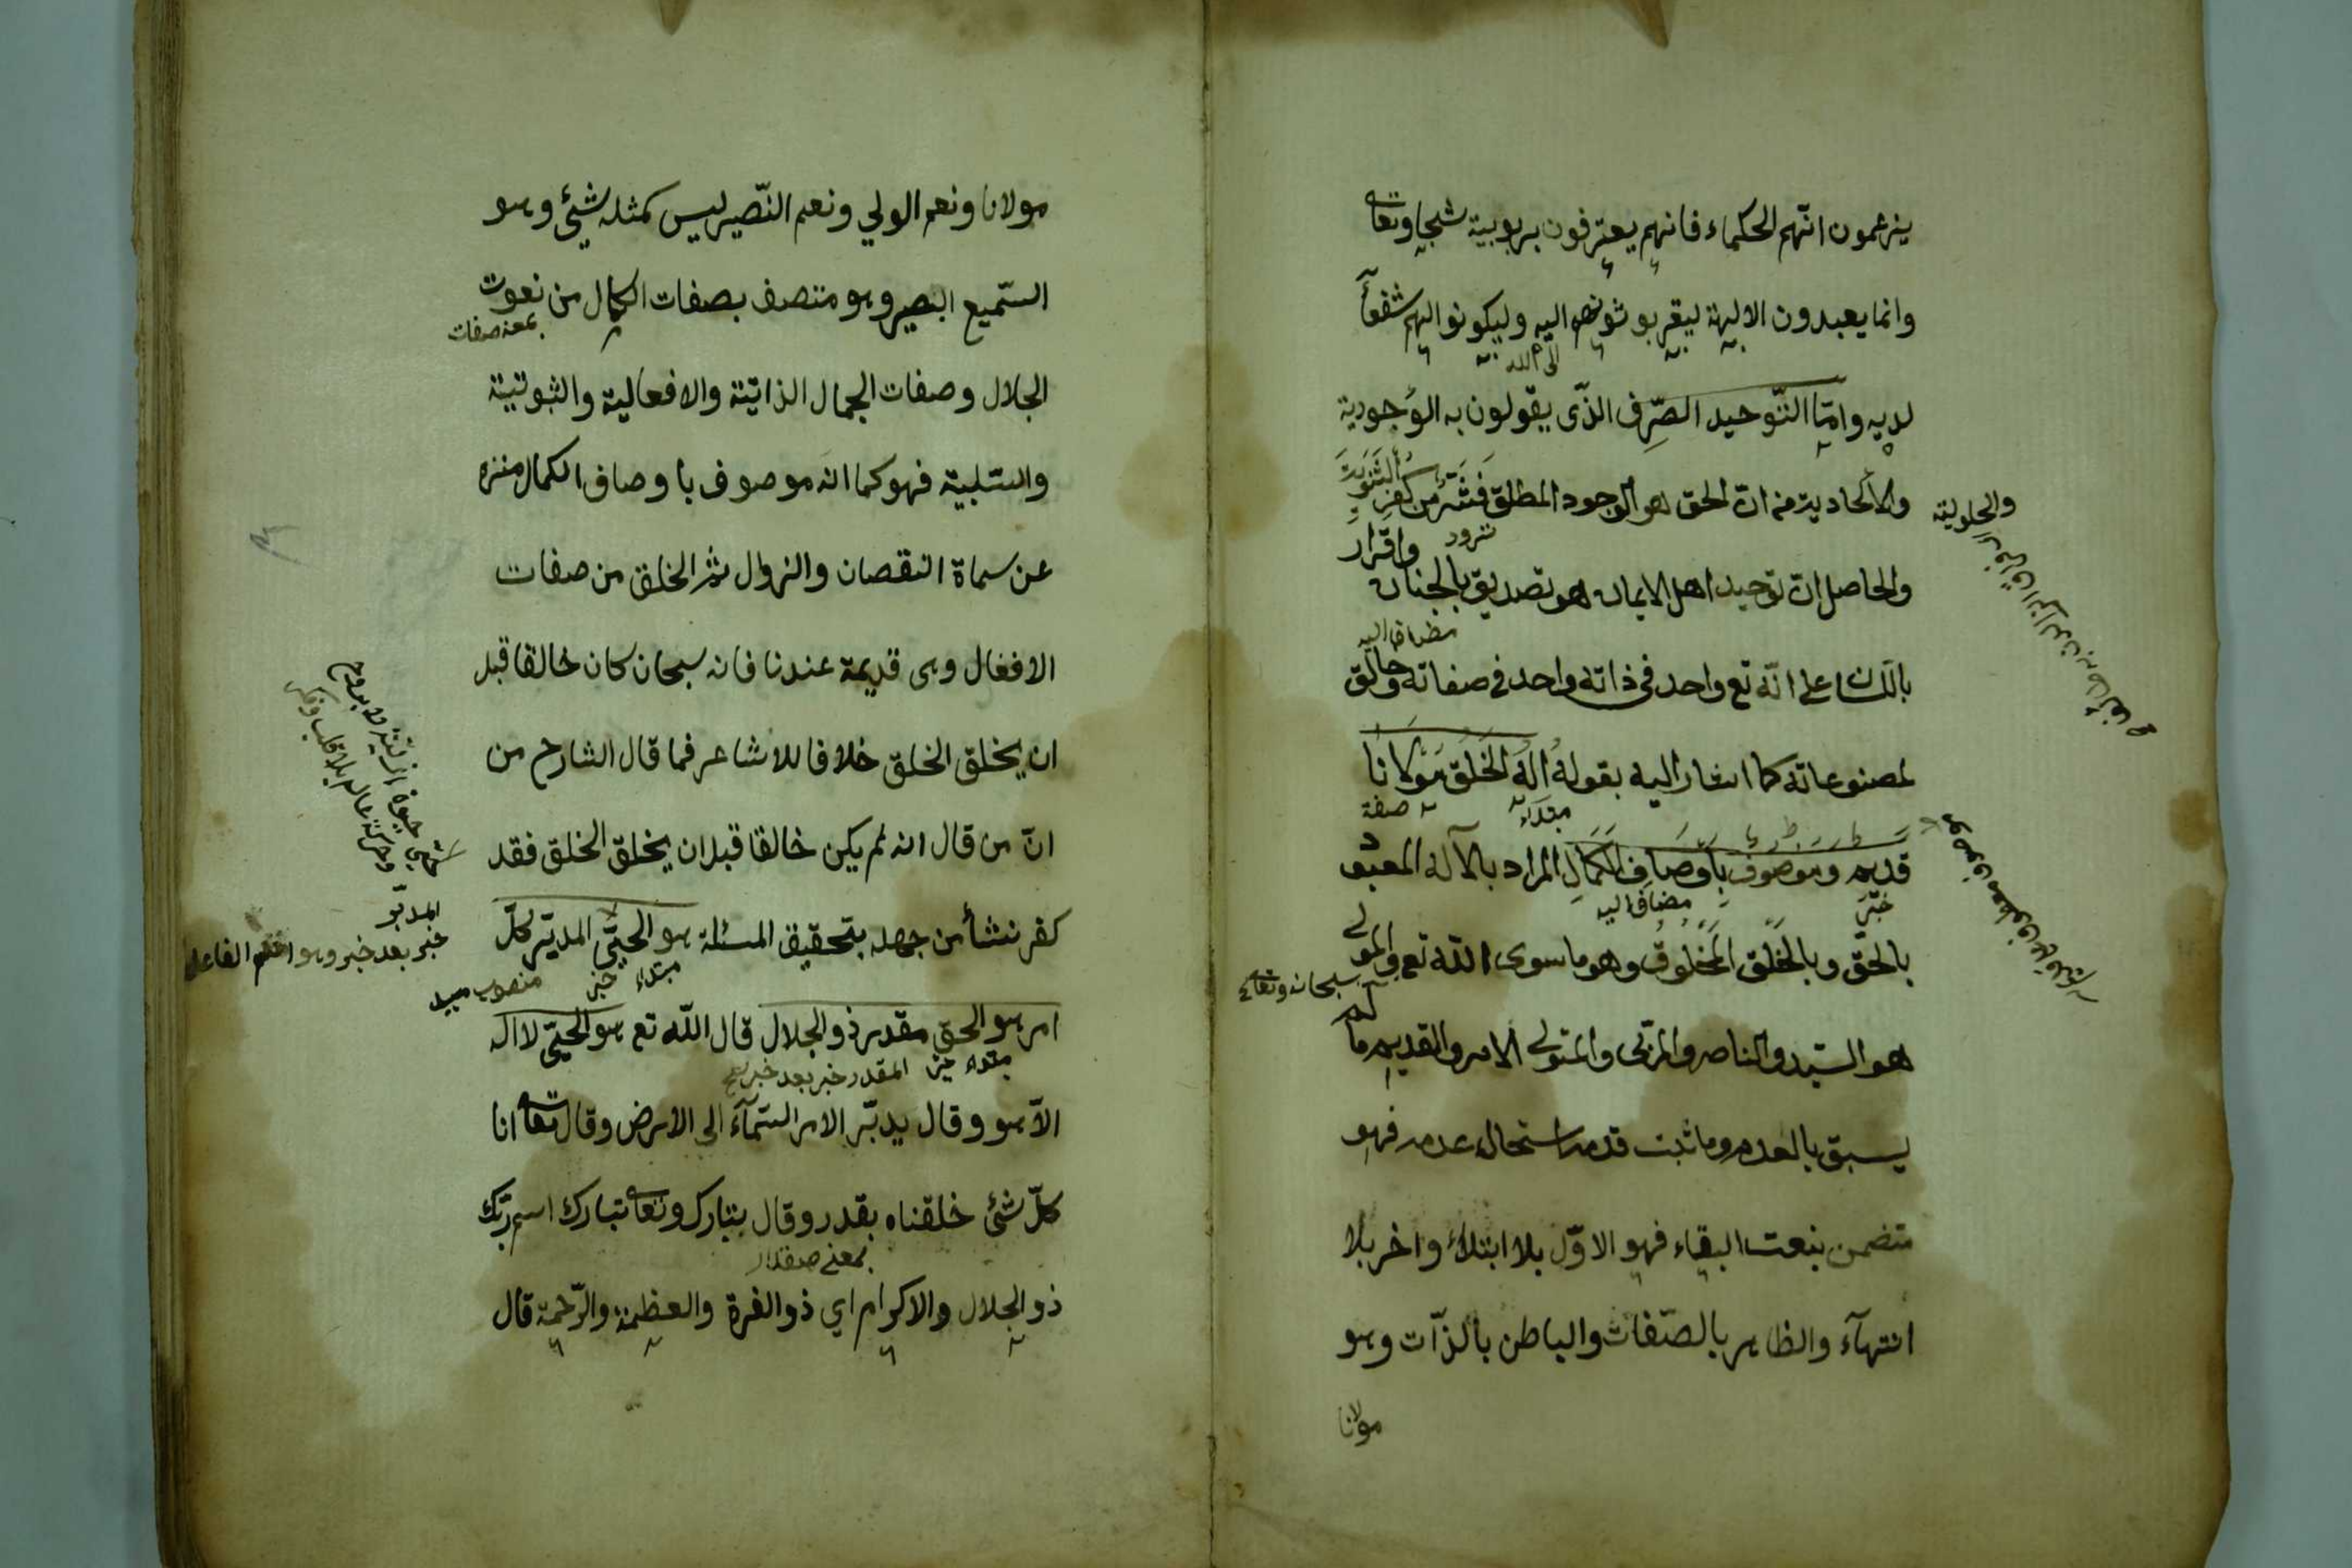 يزعمون انّهم الحكماء فانهم يعترفون بربوبية سبحا وتعا
وانما يعبدون الالهة ليقربو ثونهم اليه وليكونوا لهم شفعآ
الى الله
لديه وامّا التّوحيد الصِّرف الذّى يقولون به الوُجودية
والحلولية
والالحادية من انّ الحق هو الوجود المطلق فشَرّ من كفرِ الثَّنَوِيّةَ
والحاصل انّ توحيد اهل الايمان هو تصديق بالجنان واقرار
باللسان على انّه تع واحد فى ذاته واحد فى صفاته وخالق
مضاف اليه
لمصنوعاته كما اشار اليه بقوله الهُ الخَلقِ مَولانا
مبتداء صفة
قديم وموصوف بِاَوصَافِ الكَمَالِ المراد بالآله المعبود
خبر مضاف اليه
بالحَقّ وبالخَلق المَخلُوق وهو ما سوى الله تع والمولى
سبحانه وتعالى
هو السيّد والناصر والمربّى والمتولى الامر والقديم ما لم
يسبق بالعدم وما ثبت قدمه استحال عدمه فهو
متضمن بنعت البقاء فهو الاوّل بلا ابتداء واخر بلا
انتهآء والظاهر بالصّفات والباطن بالذّات وهو
مولانا
مولانا ونعم الولي ونعم النّصير ليس كمثله شيئ وهو
السّميع البصير وهو متصف بصفات الكمال من نعوت
بمعنه صفات
الجلال وصفات الجمال الذاتيّة والافعالية والثبوتيّة
والسّلبية فهو كما انه موصوف با وصاف الكمال منزه
عن سماة النقصان والزوال ثمّ الخلق من صفات
الافعال وهى قديمة عندنا فانه سبحان كان خالقا قبل
ان يخلق الخلق خلافا للاشاعر فما قال الشارح من
انّ من قال انه لم يكن خالقا قبل ان يخلق الخلق فقد
كفر نشأ من جهله بتحقيق المسئلة هو الحيّ المدبّر كلّ
مبتداء خبر منصوب
المدبّر
خبر بعد خبر وهو اسم الفاعل
امر هو الحق مقدر ذو الجلال قال الله تع هو الحيّ لا اله
مبتداء خبر المقدر خبر بعد خبر
الاّ هو وقال يدبّر الامر السّمآء الى الارض وقال تعا انا
كلّ شئ خلقناه بقدر وقال بتبارك وتعا تبارك اسم ربّك
ذو الجلال والاكرام اي ذو الغرة والعظمة والرّحمة قال